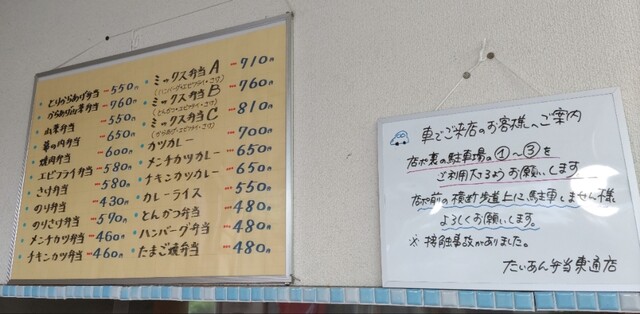 とりからあげ弁当 550
からあげ南蛮弁当 760円
幕の内弁当 650
焼肉弁当 600円
エビフライ弁当 580
さけ弁当 580円
のり弁当 430円
のりさけ弁当 590円
メンチカツ弁当 460円
チキンカツ弁当 460円
ミックス弁当A 710円
(ハンバーグ・エビフライ・さけ)
ミックス弁当B 760円
(とんかつ・エビフライ・さけ)
ミックス弁当C 810円
(からあげ・エビフライ・さけ)
カツカレー 700円
メンチカツカレー 650円
チキンカツカレー 650円
カレーライス 550円
とんかつ弁当 480円
ハンバーグ弁当 480円
たまご焼弁当 480円
車でご来店のお客様へご案内
店が裏の駐車場の①〜③を
ご利用下さるようお願いします
店が前の横断歩道上に駐車しません様
よろしくお願いします。
※ 接触事故がありました。
たいあん弁当東通店